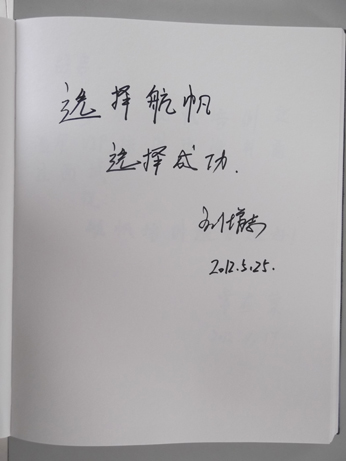 选择航帆
选择成功.
刘增
2012.5.25.